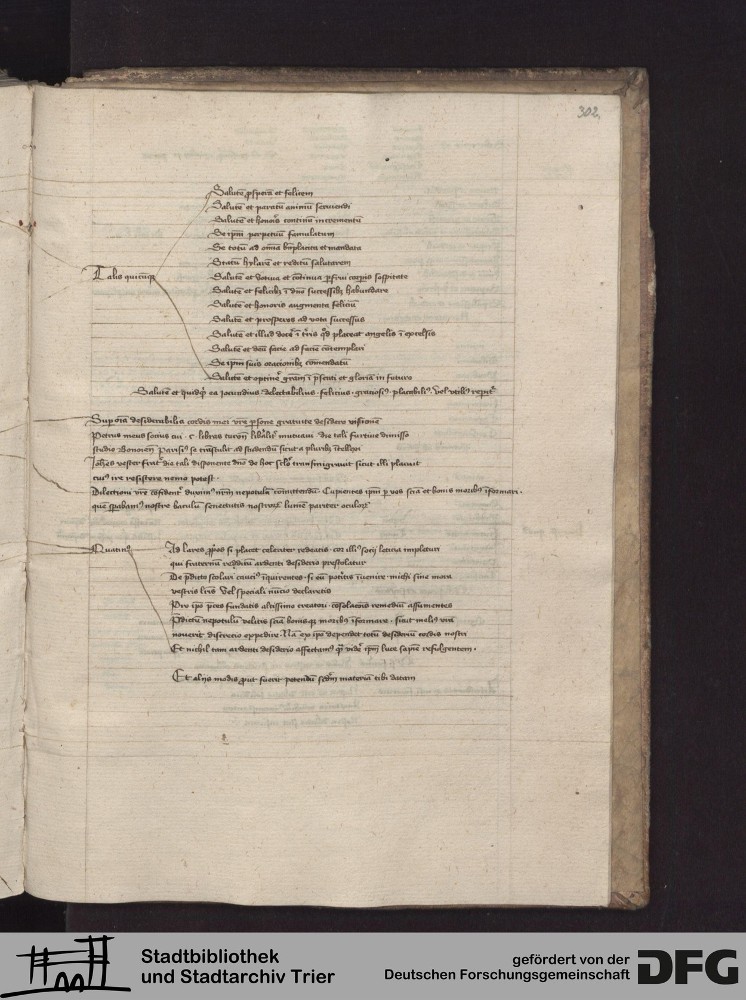 302
Salutē ꝓsperā et felicem
Salutē et paratū animū seruiendi
Salutē et honoris continuū incrementū
Se ip̄m perpetuū famulatum
Se totū ad omīa bn̄placita et mandata
Statū hylarē et reditū salutarem
Talis quicūqꝫ
Salutē et votiua et cōtinua ꝑfrui corꝑis sospitate
Salutē et felicibꝫ ī dn̄o successibꝫ habundare
Salutē et honoris augmenta feliciū
Salutē et prosperos ad vota successus
Salutē et illud docere ī tr̄is qd̓ placeat angelis ī excelsis
Salutē et deū facie ad faciē cōtemplari
Se ip̄m suis oracionibꝫ cōmendatū
Salutē et optinē gr̄am ī pn̄ti et gloriā in futuro
Salutē et quidqd̓ ea iocundius delectabilius felicius graciosiꝰ placabiliꝰ vel vtiliꝰ
Sup oīa desiderabilia cordis mei vr̄e ꝑsone gratuite desidero visionē
Petrus meus socius cui c libras turoñ liberalit̓ mutuaui die tali furtiue dimisso
studio Bonoieñ Parisiꝰ se trāstulit ad studendū sicut a pluribꝫ ītellexi
Ioh̄es vester frat̓ die tali disponente dn̄o de hoc sc̄lo transmigrauit sicut illi placuit
cuiꝰ ire resistere nemo potest
Dilectioni vr̄e nr̄m nepotulū cōmittendū Cupientes ip̄m ꝑ vos sciā et bonis moribꝫ īformari
quē sperabamꝰ nostre baculū senectutis nostrorꝫ lumē pariter oculorꝫ
Quatinꝰ
Ad lares ꝓprios si placet celeriter redeatis cor illiꝰ leticia impleturi
qui fraternū reditū ardenti desiderio prestolatur
De p̄dicto scolari cauciꝰ īquirentes si eū potitis īuenire michi sine mora
vestris lr̄is vel speciali nūcio declaretis
Pro ipo preces fundatis altissimo creatori cōsolacōis remediū assumentes
P̄dictū nepotulū velitis sciā bonisqꝫ moribꝫ īformare sicut meliꝰ vr̄a
nouerit discretio expedire Nā ex ipō dependet totū desideriū cordis nostri
Et nichil tam ardenti desiderio affectamꝰ qꝫ videre ip̄m luce sapīe refulgentem
Et alijs modis ꝓut fuerit petendū scd̄m materiā tibi datam
Stadtbibliothek
und Stadtarchiv Trier
gefördert von der
Deutschen Forschungsgemeinschaft
DFG